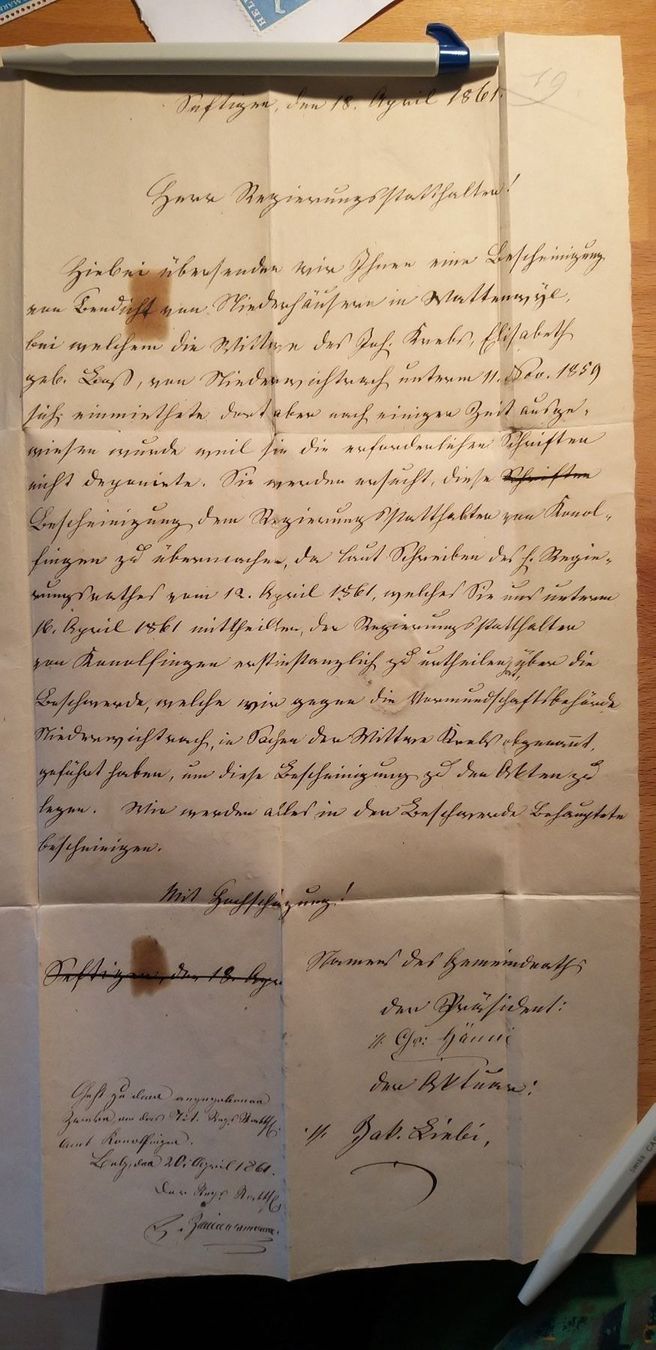 Seftigen, den 18. April 1861.
Herr Regierungsstatthalter!
Hiebei übersenden wir Ihnen eine Bescheinigung
von Bendicht von Niederhäusern in Wattenwyl,
bei welchem die Wittwe des Joh. Krebs, Elisabeth
geb. Baß, von Niederwichtrach unterm 11. Nov. 1859
sich einmiethete dort aber nach einiger Zeit ausge-
wiesen wurde weil sie die erforderlichen Schriften
nicht deponirte. Sie werden ersucht, diese Schriften
Bescheinigung dem Regierungsstatthalter von Konol-
fingen zu übermachen, da laut Schreiben des h. Regie-
rungsrathes vom 12. April 1861, welches Sie uns unterm
16. April 1861 mittheilten, der Regierungsstatthalter
von Konolfingen erstinstanzlich zu urtheilen über die
Beschwerde, welche wir gegen die Vormundschaftsbehörde
Niederwichtrach, in Sachen der Wittwe Krebs obgenannt,
geführt haben, um diese Bescheinigung zu den Akten zu
legen. Wir werden alles in der Beschwerde Behauptete
bescheinigen.
Mit Hochschäzung!
Seftigen, den 18. Apr
Namens des Gemeindraths
der Präsident:
Chr: Hänni
der Aktuar:
Jak. Liebi,
Geht zu dem angegebenen
Zweke an das Tit. Regs Statth.
Amt Konolfingen.
Belp, den 20. April 1861.
Der Regs Statth.